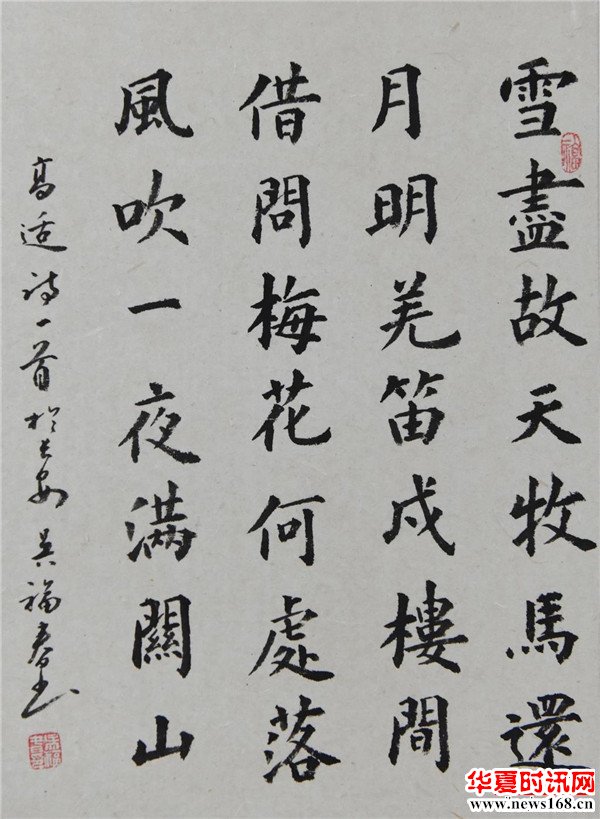 雪盡故天牧馬還
月明羌笛戍樓間
借問梅花何處落
風吹一夜滿關山
高适诗一首於长安 吴福春书
华夏时讯网
www.news168.cn